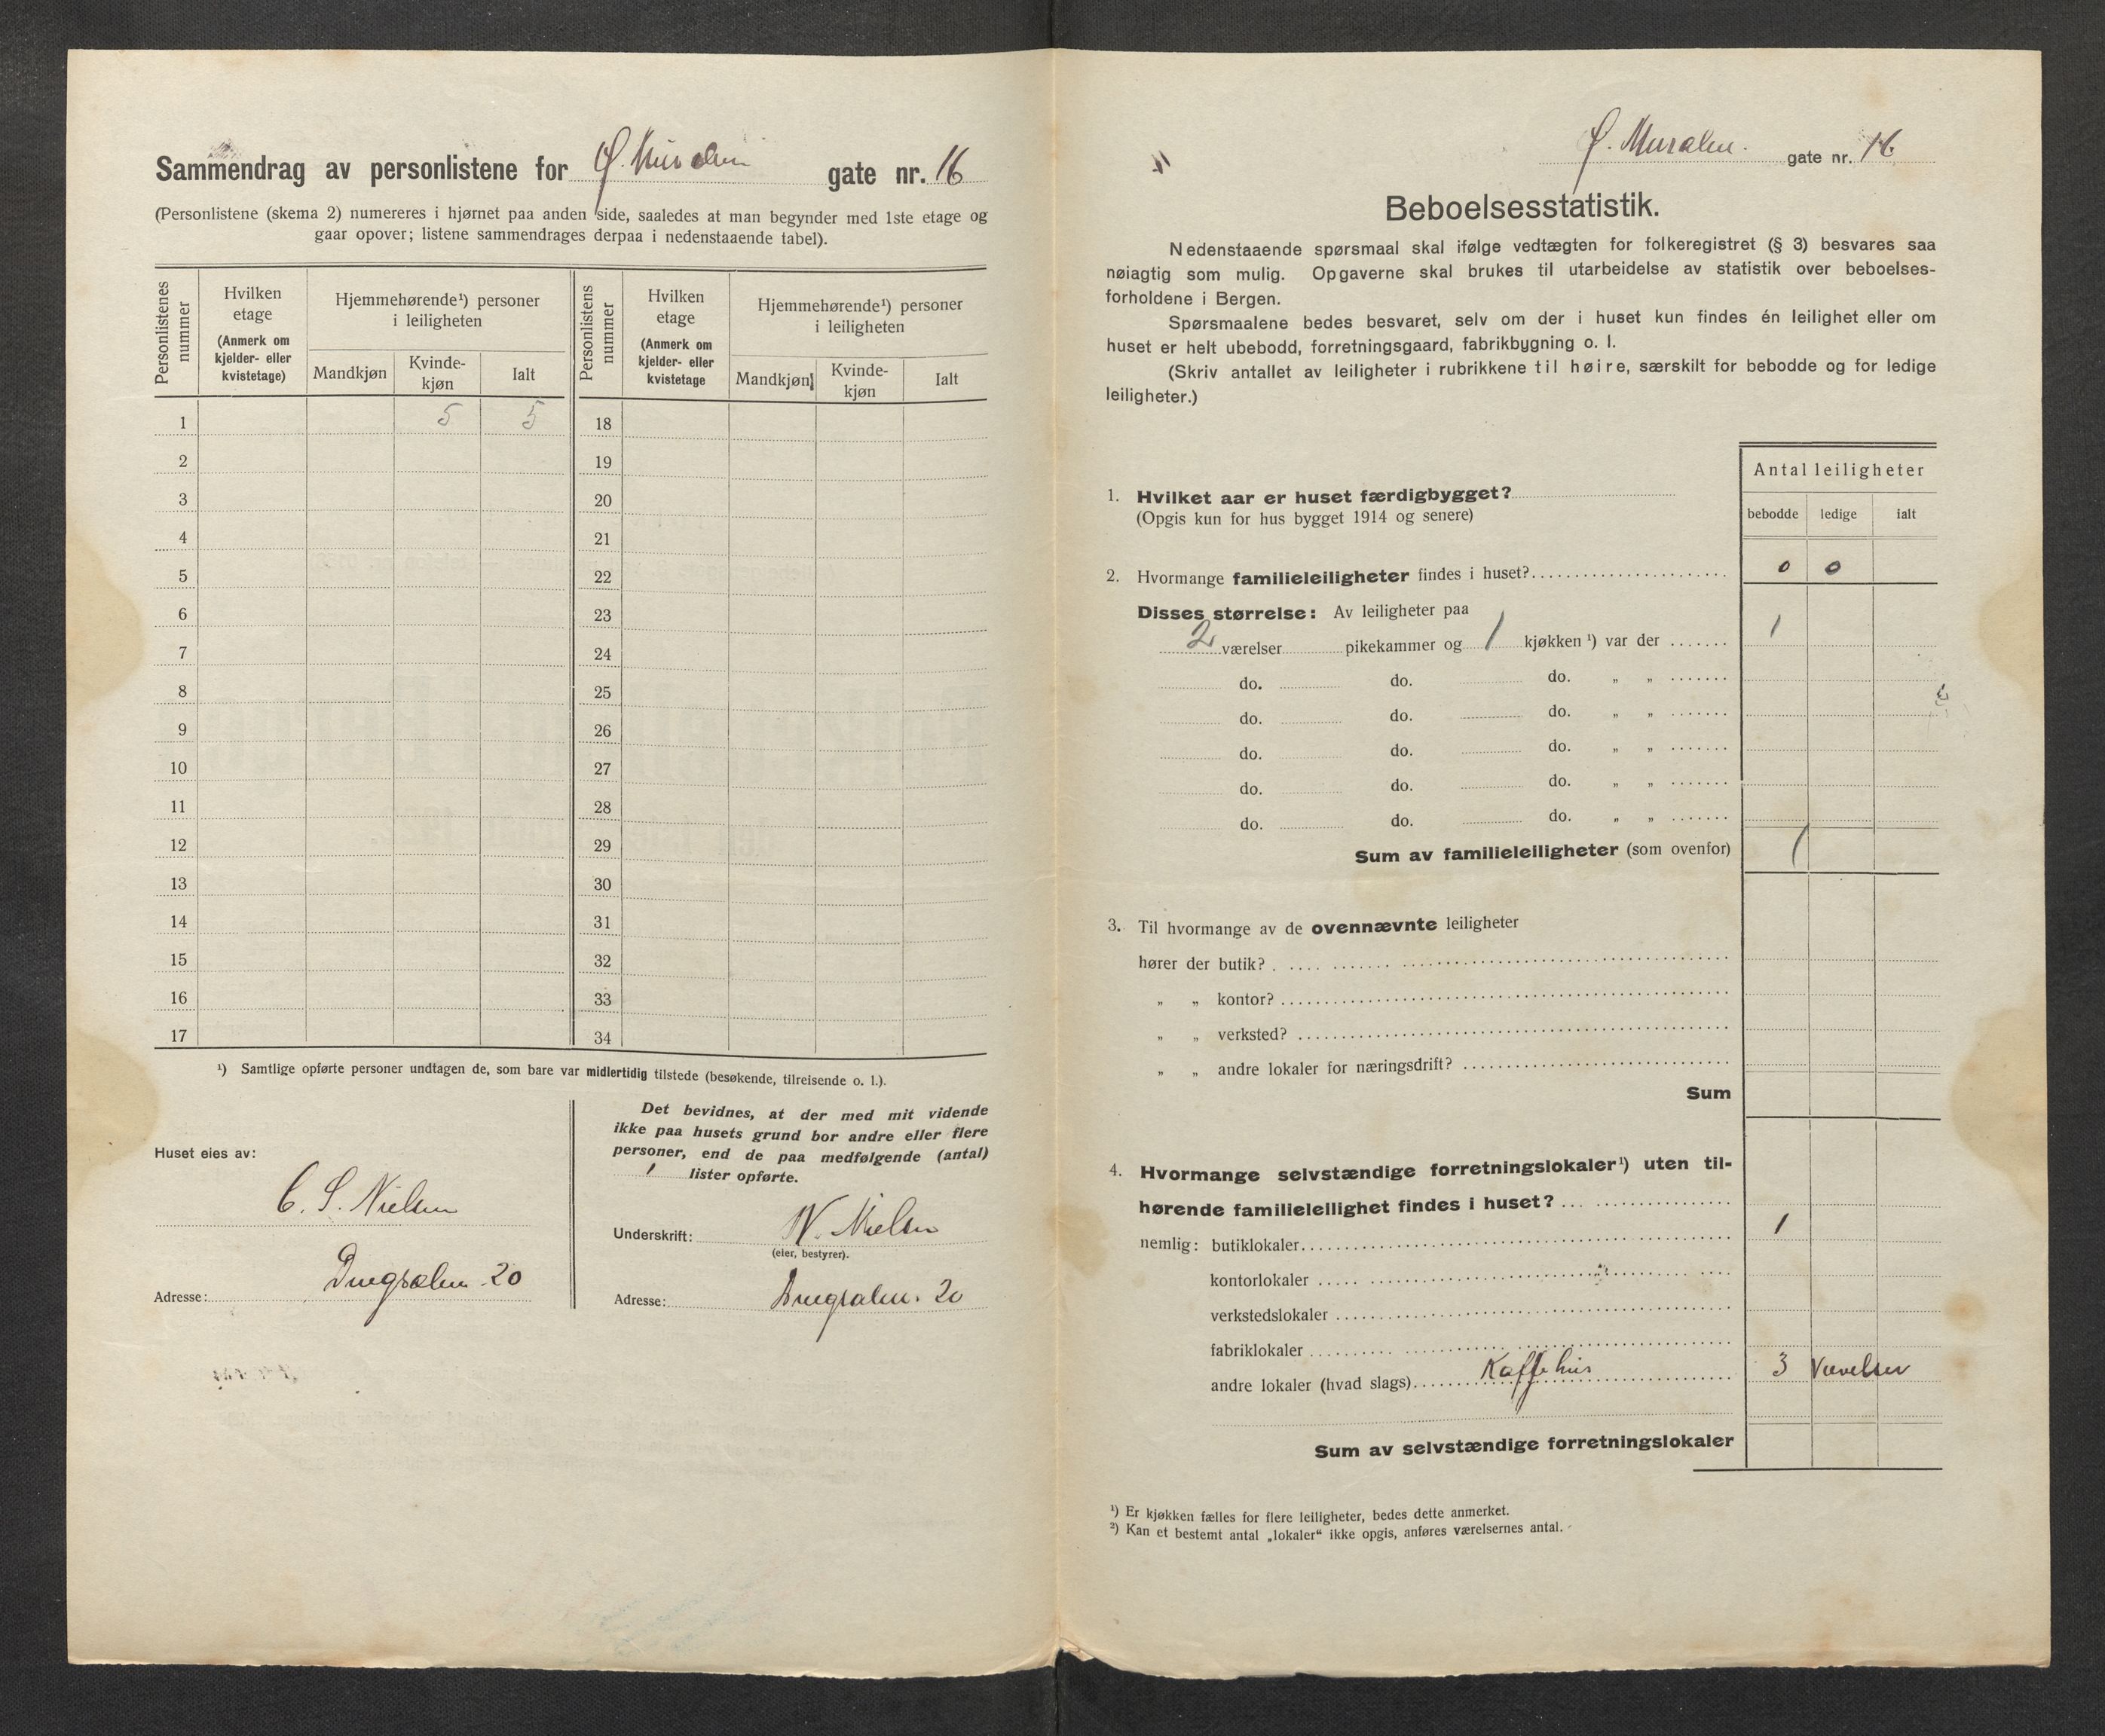 Sammendrag av personlistene for Ø. Muralm gate nr. 16
(Personlistene (skema 2) numereres i hjørnet paa anden side, saaledes at man begynder med 1ste etage og
gaar opover; listene sammendrages derpaa i nedenstaaende tabel).
Personlistenes nummer
Hvilken etage
(Anmerk om kjelder- eller kvistetage)
Hjemmehørende¹) personer i leiligheten
Mandkjøn Kvinde-kjøn Ialt
Personlistens nummer
Hvilken etage
(Anmerk om kjelder- eller kvistetage
Hjemmehørende¹) personer i leiligheten
Mandkjøn Kvinde-kjøn Ialt
1 5 5 18
2 19
3 20
4 21
5 22
6 23
7 24
8 25
9 26
10 27
11 28
12 29
13 30
14 31
15 32
16 33
17 34
¹) Samtlige opførte personer undtagen de, som bare var midlertidig tilstede (besøkende, tilreisende o. l.).
Huset eies av:
C. S. Nielsen
Adresse: Dregsalm. 20
Det bevidnes, at der med mit vidende
ikke paa husets grund bor andre eller flere
personer, end de paa medfølgende (antal)
1 lister opførte.
Underskrift: N. Nielsen
(eier, bestyrer).
Adresse: Dregsalm. 20
Ø. Muralm. gate nr. 16
Beboelsesstatistik.
Nedenstaaende spørsmaal skal ifølge vedtægten for folkeregistret (§ 3) besvares saa
nøiagtig som mulig. Opgaverne skal brukes til utarbeidelse av statistik over beboelses-
forholdene i Bergen.
Spørsmaalene bedes besvaret, selv om der i huset kun findes én leilighet eller om
huset er helt ubebodd, forretningsgaard, fabrikbygning o. l.
(Skriv antallet av leiligheter i rubrikkene til høire, særskilt for bebodde og for ledige
leiligheter.)
Antal leiligheter
bebodde ledige ialt
1. Hvilket aar er huset færdigbygget?
(Opgis kun for hus bygget 1914 og senere)
2. Hvormange familieleiligheter findes i huset? 0 0
Disses størrelse: Av leiligheter paa
2 værelser pikekammer og 1 kjøkken ¹) var der 1
do. do. do. „ „
do. do. do. „ „
do. do. do. „ „
do. do. do. „ „
do. do. do. „ „
Sum av familieleiligheter (som ovenfor) 1
3. Til hvormange av de ovennævnte leiligheter
hører der butik?
„ „ kontor?
„ „ verksted?
„ „ andre lokaler for næringsdrift?
Sum
4. Hvormange selvstændige forretningslokaler¹) uten til-
hørende familieleilighet findes i huset?
nemlig: butiklokaler 1
kontorlokaler
verkstedslokaler
fabriklokaler
andre lokaler (hvad slags) Kaffehus 3 Værelser
Sum av selvstændige forretningslokaler
¹) Er kjøkken fælles for flere leiligheter, bedes dette anmerket.
²) Kan et bestemt antal „lokaler“ ikke opgis, anføres værelsernes antal.